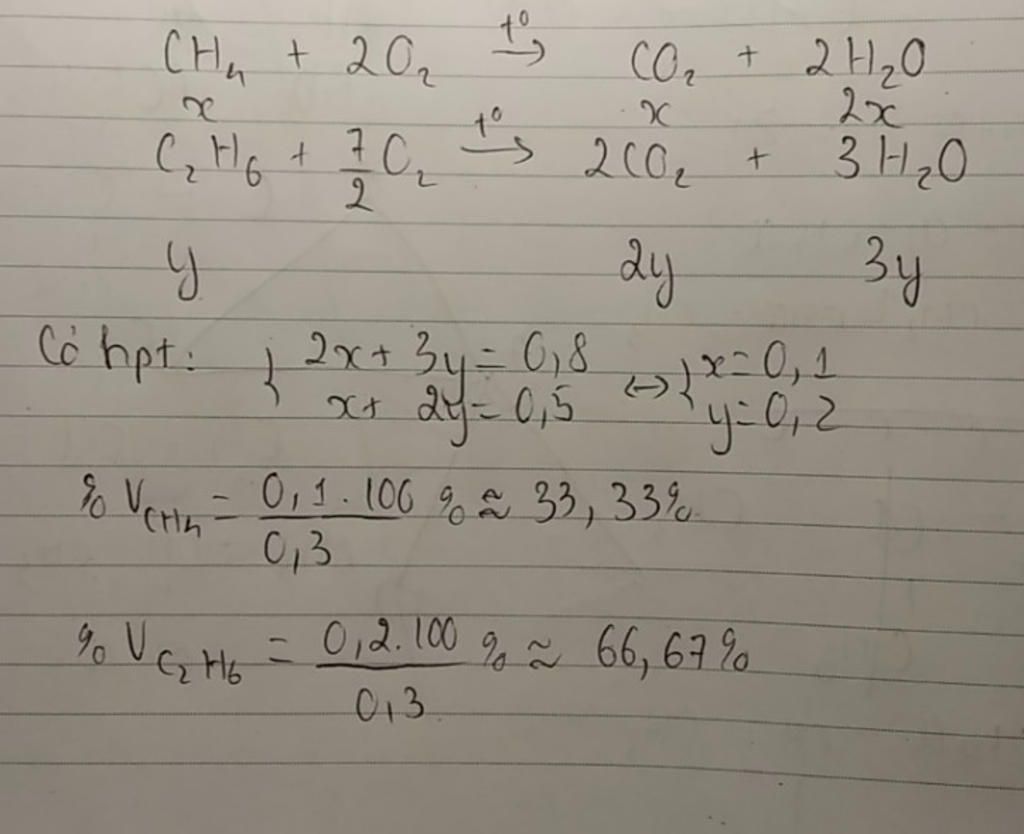 CH₄ + 2O₂ →(t°) CO₂ + 2H₂O
x x 2x
C₂H₆ + 7/2 O₂ →(t°) 2CO₂ + 3H₂O
y 2y 3y
Có hpt: { 2x + 3y = 0,8 ↔ { x = 0,1
x + 2y = 0,5 y = 0,2
% V CH₄ = 0,1 . 100 % ≈ 33,33%
0,3
% V C₂H₆ = 0,2 . 100 % ≈ 66,67%
0,3